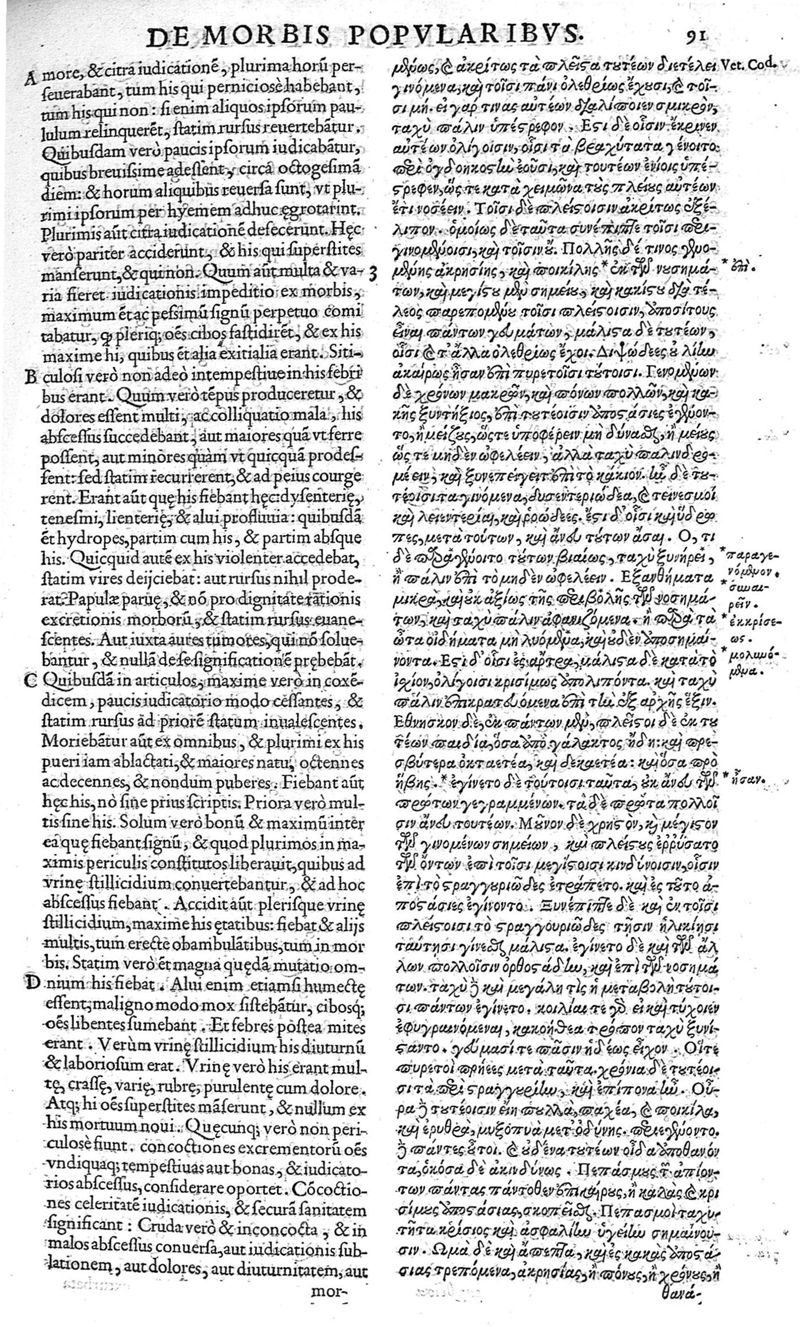 DE MORBIS POPVLARIBVS. 91
A more, & citra iudicationē, plurima horū per-
seuerabant, tum his qui perniciosè habebant,
tum his qui non: si enim aliquos ipsorum pau-
lulum relinquerēt, statim rursus reuertebātur.
Quibusdam verò paucis ipsorum iudicabātur,
quibus breuissime adessent, circa octogesimā
diem: & horum aliquibus reuersa sunt, vt plu-
rimi ipsorum per hyemem adhuc ęgrotarint.
Plurimis aūt citra iudicationē desecerunt. Hęc
verò pariter acciderunt, & his qui superstites
manserunt, & qui non. Quum aūt multa & va- 3
ria fieret iudicationis impeditio ex morbis,
maximum ēt ac pessimū signū perpetuo comi
tabatur, ꝙ pleriq; oēs cibos fastidirēt, & ex his
maxime hi, quibus ēt alia exitialia erant. Siti-
B culosi verò non adeò intempestiue in his febri
bus erant. Quum verò tēpus produceretur, &
dolores essent multi, ac colliquatio mala, his
abscessus succedebant, aut maiores quā vt ferre
possent, aut minōres quàm vt quicquā prodes-
sent: sed statim recurrerent, & ad peius courge
rent. Erant aūt quę his fiebant hęc: dysenterię,
tenesmi, lienterię, & alui profluuia: quibusdā
ēt hydropes, partim cum his, & partim absque
his. Quicquid autē ex his violenter accedebat,
statim vires deijciebat: aut rursus nihil prode-
rat. Papulæ paruę, & nō pro dignitate rationis
excretionis morborū, & statim rursus euane-
scentes. Aut iuxta aures tumores, qui nō solue-
bantur, & nullā de se significationē prębebāt.
C Quibusdā in articulos, maxime verò in coxē-
dicem, paucis iudicatorio modo cessantes, &
statim rursus ad priorē statum inualescentes.
Moriebātur aūt ex omnibus, & plurimi ex his
pueri iam ablactati, & maiores natu, octennes
ac decennes, & nondum puberes. Fiebant aūt
hęc his, nō sine prius scriptis. Priora verò mul-
tis sine his. Solum verò bonū & maximū inter
ea quę fiebant signū, & quod plurimos in ma-
ximis periculis constitutos liberauit, quibus ad
vrinę stillicidium conuertebantur, & ad hoc
abscessus fiebant. Accidit aūt plerisque vrinę
stillicidium, maxime his ętatibus: fiebat & alijs
multis, tum erecte obambulātibus, tum in mor
bis. Statim verò et magna quędā mutatio om-
D nium his fiebat. Alui enim etiamsi humectę
essent, maligno modo mox sistebātur, cibosq;
oēs libentes sumebant. Et febres postea mites
erant. Verùm vrinę stillicidium his diuturnū
& laboriosum erat. Vrinę verò his erant mul-
tę, crassę, varię, rubrę, purulentę cum dolore.
Atq; hi oēs superstites māserunt, & nullum ex
his mortuum noui. Quęcunq; verò non peri-
culosè fiunt. concoctiones excrementorū oēs
vndiquaq; tempestiuas aut bonas, & iudicato-
rios abscessus, considerare oportet. Cōcoctio-
nes celeritatē iudicationis, & securā sanitatem
significant: Cruda verò & inconcocta, & in
malos abscessus conuersa, aut iudicationis sub-
lationem, aut dolores, aut diuturnitatem, aut
mor-
μένως, καὶ ἀκρίτως τὰ πλεῖστα τυτέων διετέλει Vet. Cod.
γινόμενα, καὶ τοῖσι πάνυ ὀλεθρίως ἔχουσι, καὶ τοῖ-
σι μή. εἰ γάρ τινας αὐτέων διαλίποιεν σμικρὸν,
ταχὺ πάλιν ὑπέστρεφον. Ἔτι δὲ οἷσιν ἔκρινεν
αὐτέων ὀλίγοισιν, οἷσι τὰ βραχύτατα γένοιτο
περὶ ὀγδοηκοστὴν ἐοῦσι, καὶ τουτέων ἐνίοις ὑπέ-
στρεφεν, ὥς τε κατὰ χειμῶνα τοὺς πλείους αὐτέων
ἔτι νοσέειν. Τοῖσι δὲ πλείστοισιν ἀκρίτως ἐξέ-
λιπον. ὁμοίως δὲ ταῦτα συνέπιπτε τοῖσι περι-
γινομένοισι, καὶ τοῖσιν οὔ. Πολλῆς δέ τινος γενο-
μένης ἀκρησίης, καὶ ποικίλης *ἐκ τῶν νοσημά- *ἐπὶ.
των, καὶ μεγίστου μὲν σημείου, καὶ κακίστου διὰ τέ-
λεος παρεπομένου τοῖσι πλείστοισιν, ἀποσίτους
εἶναι πάντων γευμάτων, μάλιστα δὲ τυτέων,
οἷσι καὶ τ' ἄλλα ὀλεθρίως ἔχοι. Διψώδεες δ λίην
ἀκαίρως ἦσαν ἐπὶ πυρετοῖσι τύτοισι. Γενομένων
δὲ χρόνων μακρῶν, καὶ πόνων πολλῶν, καὶ κα-
κῆς ξυντήξιος, ἐπὶ τυτέοισιν ἀποστάσιες ἐγένον-
το, ἢ μείζους, ὥστε ὑποφέρειν μὴ δύναθαι, ἢ μείους
ὥς τε μηδὲν ὠφελέειν, ἀλλὰ ταχὺ παλινδρο-
μέειν, καὶ ξυνεπείγειν ἐπὶ τὸ κάκιον. ἦν δὲ τυ-
τέοισι τὰ γινόμενα, δυσεντεριώδεα, καὶ τεινεσμοὶ
καὶ λειεντερίαι, καὶ ῥοώδεες. ἔςι δ' οἷσι καὶ ὕδρω-
πες, μετὰ τούτων, καὶ ἄνευ τύτων ἄσαι. Ὅ, τι
δὲ παραγένοιτο τύτων βιαίως, ταχὺ ξυνῄρει, *παραγε-
νόμενον.
ἢ πάλιν ἐπὶ τὸ μηδὲν ὠφελέειν. Ἐξανθήματα *συναι-
ρεῖν.
μικρὰ, καὶ ἀκ ἀξίως τῆς περιβολῆς τῶν νοσημά-
των, καὶ ταχὺ πάλιν ἀφανιζόμενα. ἢ παρὰ τὰ *ἐκκρίσε-
ως.
ὦτα οἰδήματα μὴ λυόμενα, καὶ οὐδὲν ἀποσημαί- *μολυνό-
μενα.
νοντα. Ἔςι δ' οἷσι ἐς ἄρθρα, μάλιστα δὲ κατὰ τὸ
ἰσχίον, ὀλίγοισι κρισίμως ἀπολιπόντα. καὶ ταχὺ
πάλιν ἐπικρατευόμενα ἐπὶ τὴν ἐξ ἀρχῆς ἕξιν.
Ἔθνησκον δὲ, ἐκ πάντων μὲν, πλεῖστοι δὲ ἐκ τυ-
τέων παιδία, ὅσα ἀπὸ γάλακτος ἤδη: καὶ πρε-
σβύτερα ὀκταετέα, καὶ δεκαετέα: καὶ ὅσα πρὸ
ἥβης. *ἐγίνετο δὲ τούτοισι ταῦτα, οὐκ ἄνευ τῶν *ἦσαν.
πρώτων γεγραμμένων. τὰ δὲ πρῶτα πολλοῖ
σιν ἄνευ τουτέων. Μῦνον δὲ χρηστὸν, καὶ μέγιστον
τῶν γινομένων σημείων, καὶ πλείστους ἐῤῥύσατο
τῶν ὄντων ἐπὶ τοῖσι μεγίστοισι κινδύνοισιν, οἷσιν
ἐπὶ τὸ στραγγουριῶδες ἐτράπετο. καὶ ἐς τοῦτο ἀ-
ποστάσιες ἐγίνοντο. Ξυνέπιπτε δὲ καὶ ἐν τοῖσι
πλείστοισι τὸ στραγγουριῶδες τῇσιν ἡλικίῃσι
ταύτῃσι γίνεσθαι μάλιστα. ἐγίνετο δὲ καὶ τῶν ἄλ-
λων πολλοῖσιν ὀρθοστάδην, καὶ ἐπὶ τῶν νοσημά
των. ταχὺ δὲ καὶ μεγάλη τὶς ἡ μεταβολὴ τύτοι-
σι πάντων ἐγίνετο. κοιλίαι τε γὰρ εἰ καὶ τύχοιεν
ἐφυγραινόμεναι, κακοήθεα τρόπον ταχὺ ξυνί-
σταντο. γεύμασί τε πᾶσιν ἡδέως εἶχον. Οἵτε
πυρετοὶ πρηέες μετὰ ταῦτα. χρόνια δὲ τυτέοι-
σι τὰ περὶ στραγγυρίην, καὶ ἐπίπονα ἦν. Οὖ-
ρα δὲ τυτέοισιν ἔιη πουλλὰ, παχέα, καὶ ποικίλα,
καὶ ἐρυθρὰ, μυξόπυα μετ' ὀδύνης. περιεγένοντο
δὲ πάντες οὗτοι. καὶ οὐδένα τυτέων οἶδα ἀποθανόν
τα, ὁκόσα δὲ ἀκινδύνως. Πεπασμὺς τ ἀπίον-
των πάντας πάντοθεν ἐπικαίρυς, ἢ καλὰς καὶ κρι
σίμυς ἀποστάσιας, σκοπέεσθαι. Πεπασμοὶ ταχυ-
τῆτα κρίσιος καὶ ἀσφαλίην ὑγιείην σημαίνου-
σιν. Ὠμὰ δὲ καὶ ἄπεπτα, καὶ ἐς κακὰς ἀποστά-
σιας τρεπόμενα, ἀκρησίας, ἢ πόνυς, ἢ χρόνυς, ἢ
θανά-